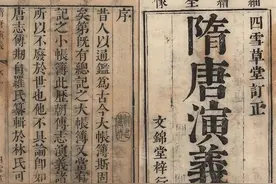 四雪草堂訂正
隋唐演義
文錦堂梓行
序
昔人以通鑑為古今大帳簿斯固
矣第既有總記之大帳簿又當有
記之小帳簿此歷朝傳志演義諸
所以不廢於世也他不具論即如
唐志傳創自羅氏纂輯於林氏可